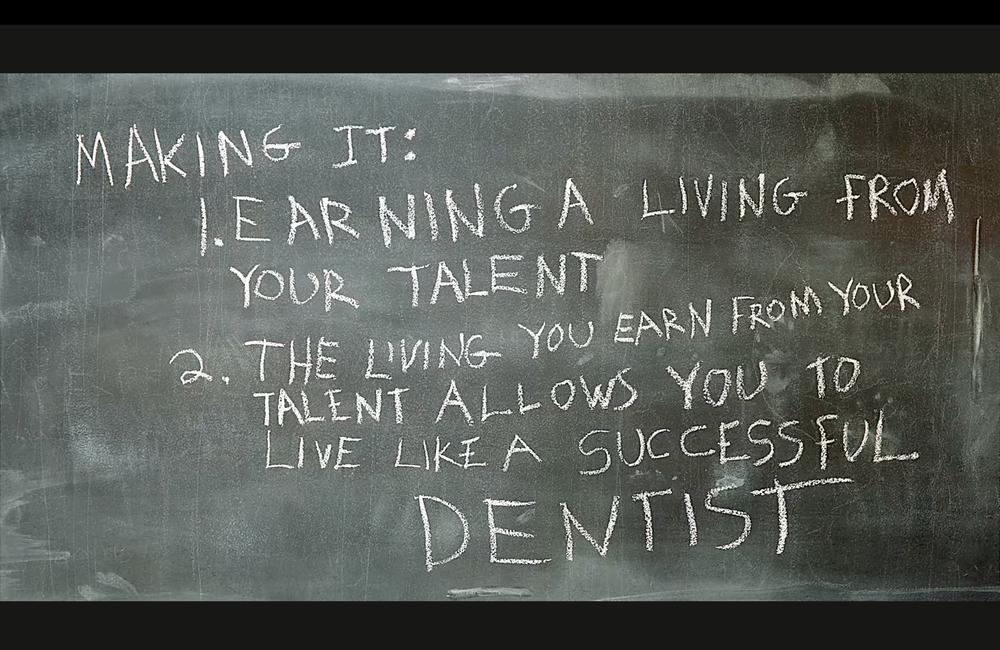 MAKING IT:
1. EARNING A LIVING FROM
YOUR TALENT
2. THE LIVING YOU EARN FROM YOUR
TALENT ALLOWS YOU TO
LIVE LIKE A SUCCESSFUL
DENTIST